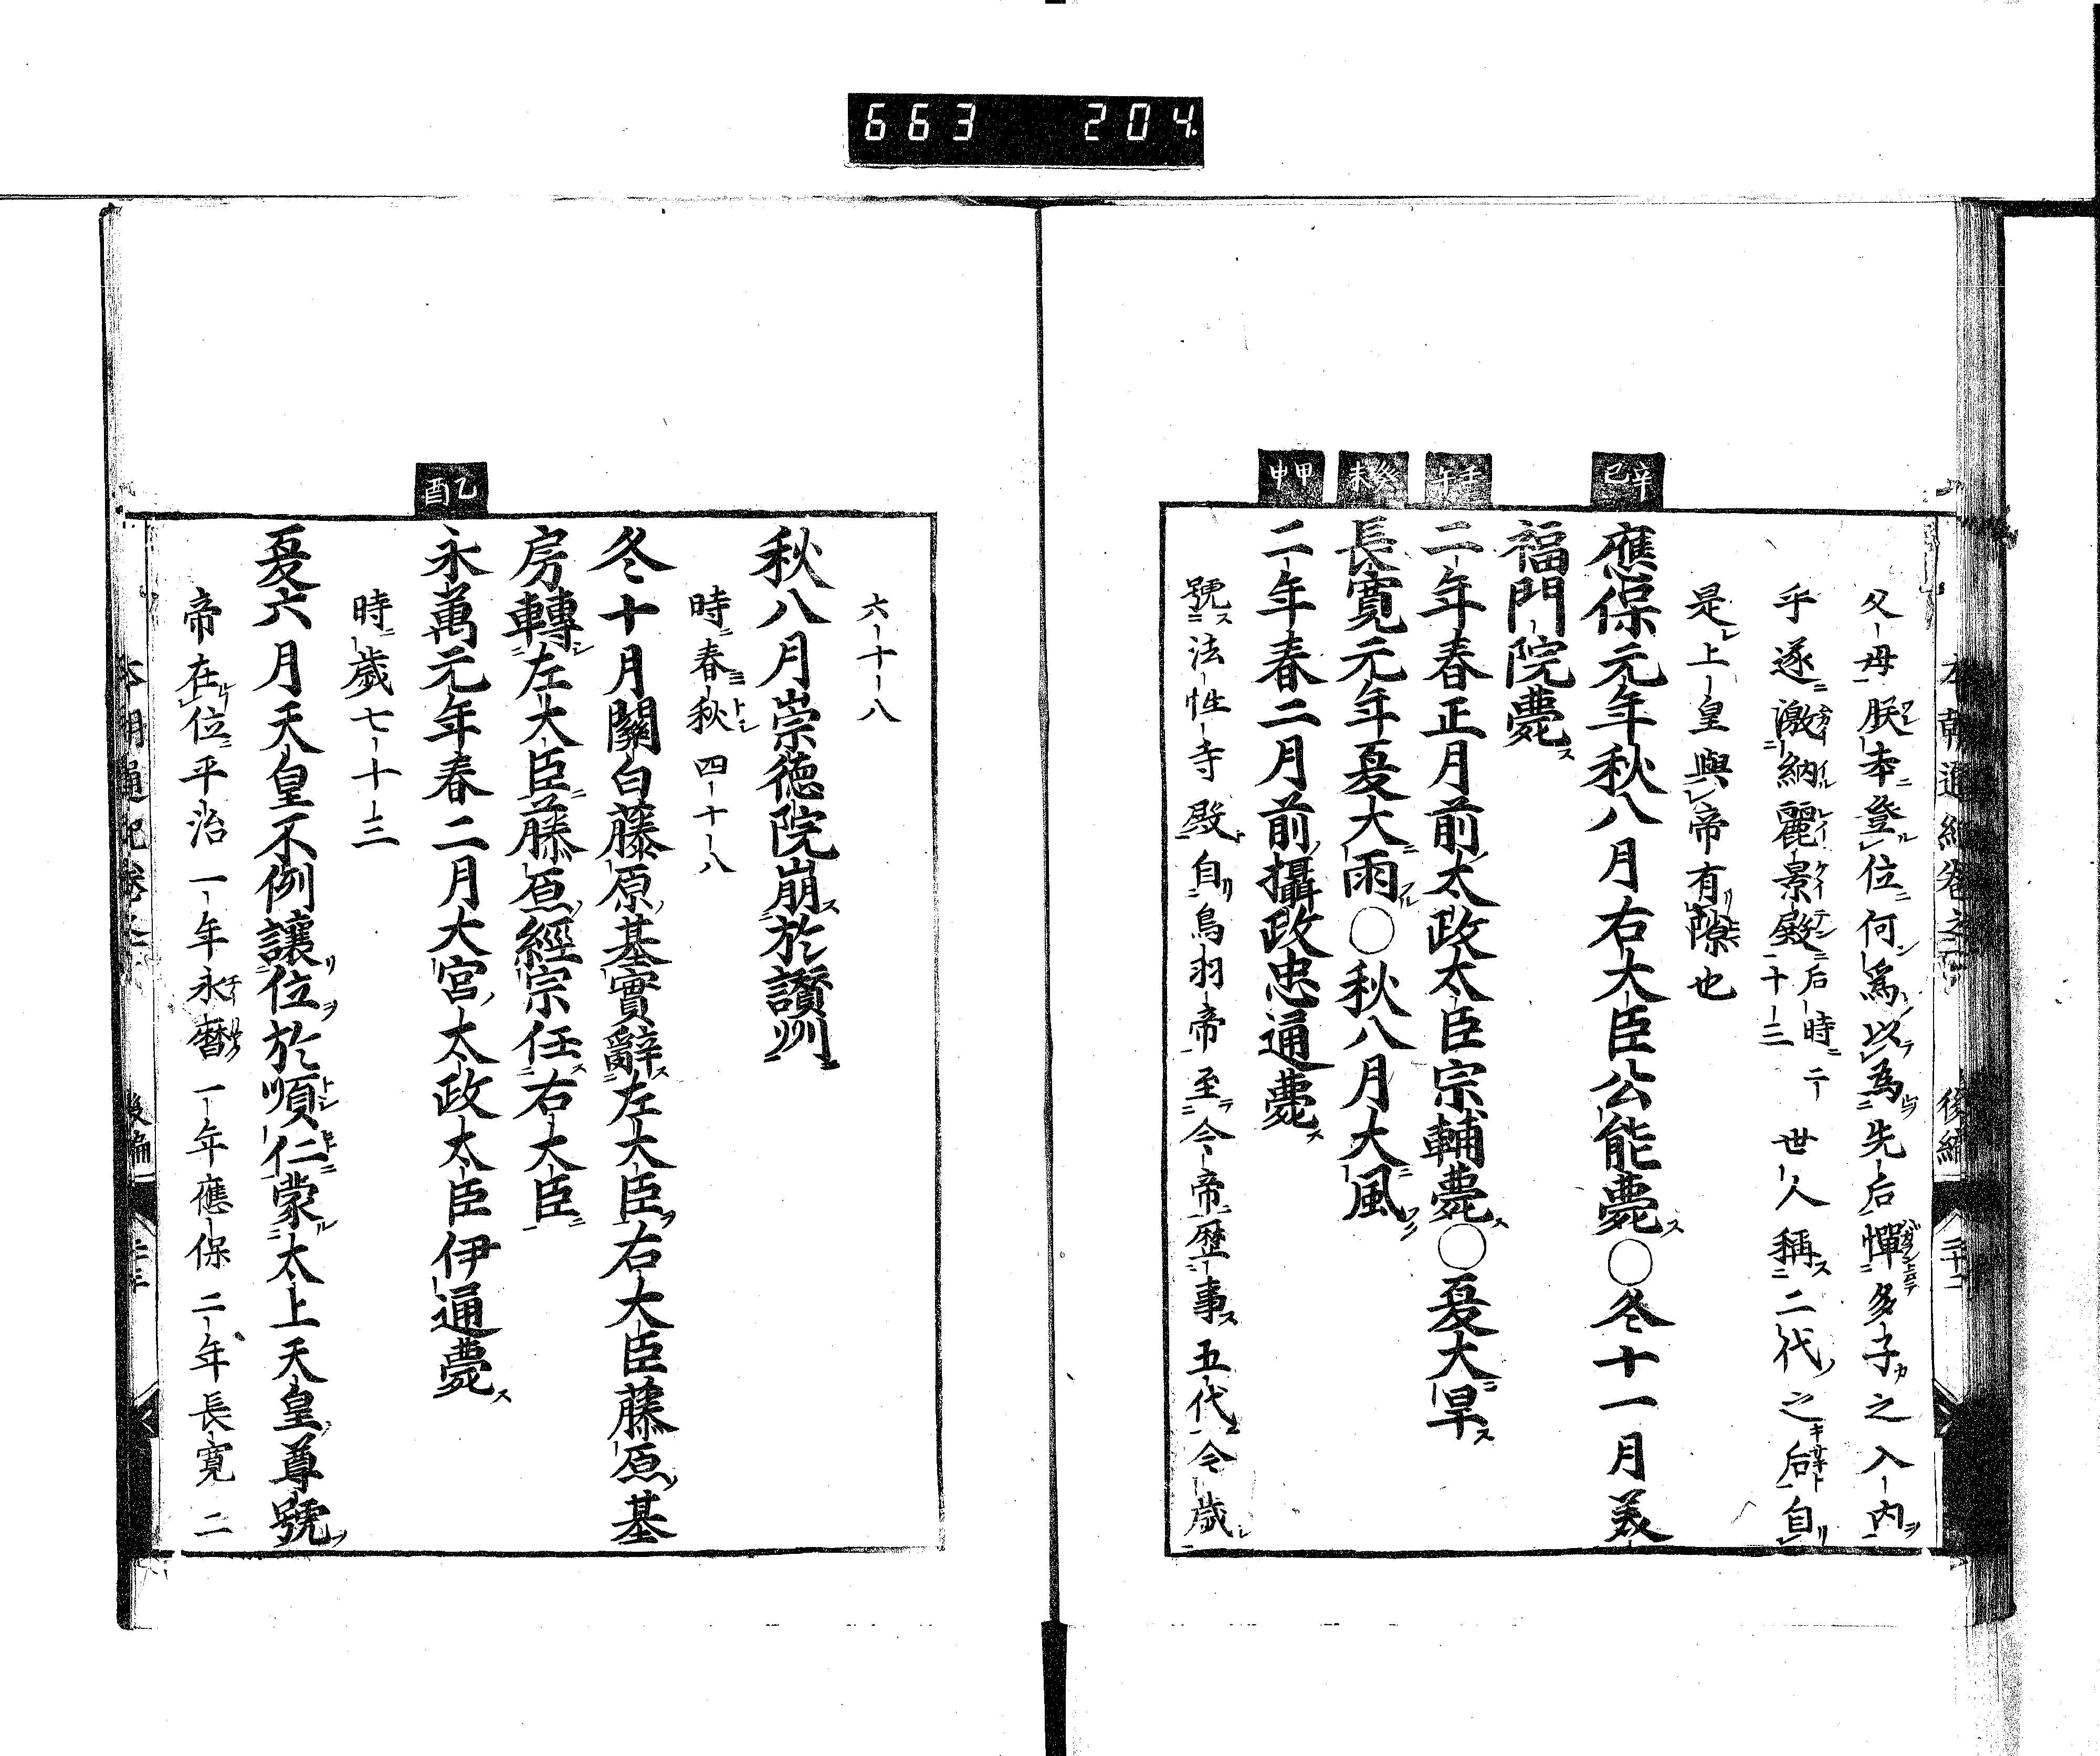 663 204
本朝通紀卷之 後編
父母朕本登位何爲以為先后憚多子之入內
乎遂激納麗景殿后時二十三世人稱二代之后自
是上皇與帝有隙也
辛巳
應保元年秋八月右大臣公能薨○冬十一月美
福門院薨
壬午
二年春正月前太政太臣宗輔薨○夏大旱
癸未
長寬元年夏大雨○秋八月大風
甲申
二年春二月前攝政忠通薨
號法性寺殿自鳥羽帝至今帝歷事五代令歲
六十八
秋八月崇德院崩於讃州
時春秋四十八
冬十月關白藤原基實辭左大臣右大臣藤原基
房轉左大臣藤原經宗任右大臣
乙酉
永萬元年春二月大宮太政太臣伊通薨
時歲七十三
夏六月天皇不例讓位於順仁蒙太上天皇尊號
帝在位平治一年永曆一年應保二年長寬二